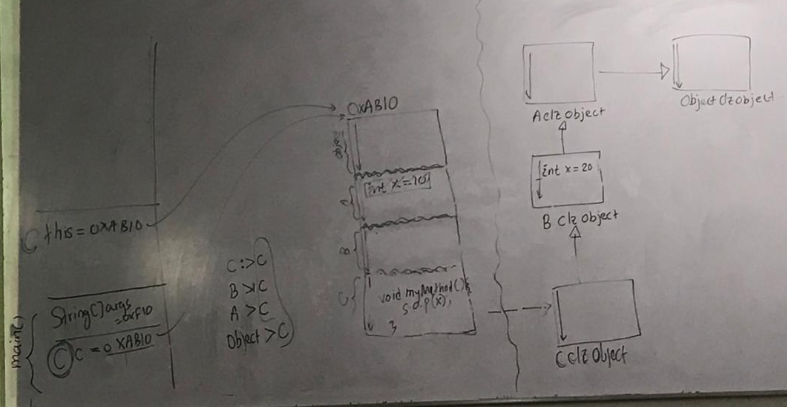 C this = 0XAB10
String[] args
= 0xF10
C C = 0XAB10
main()
C :> C
B > C
A > C
Object > C
0XAB10
int x = 10
A
B
C
void myMethod() {
s.o.p(x);
}
A clz object
Object clz object
int x = 20
B clz object
C clz Object